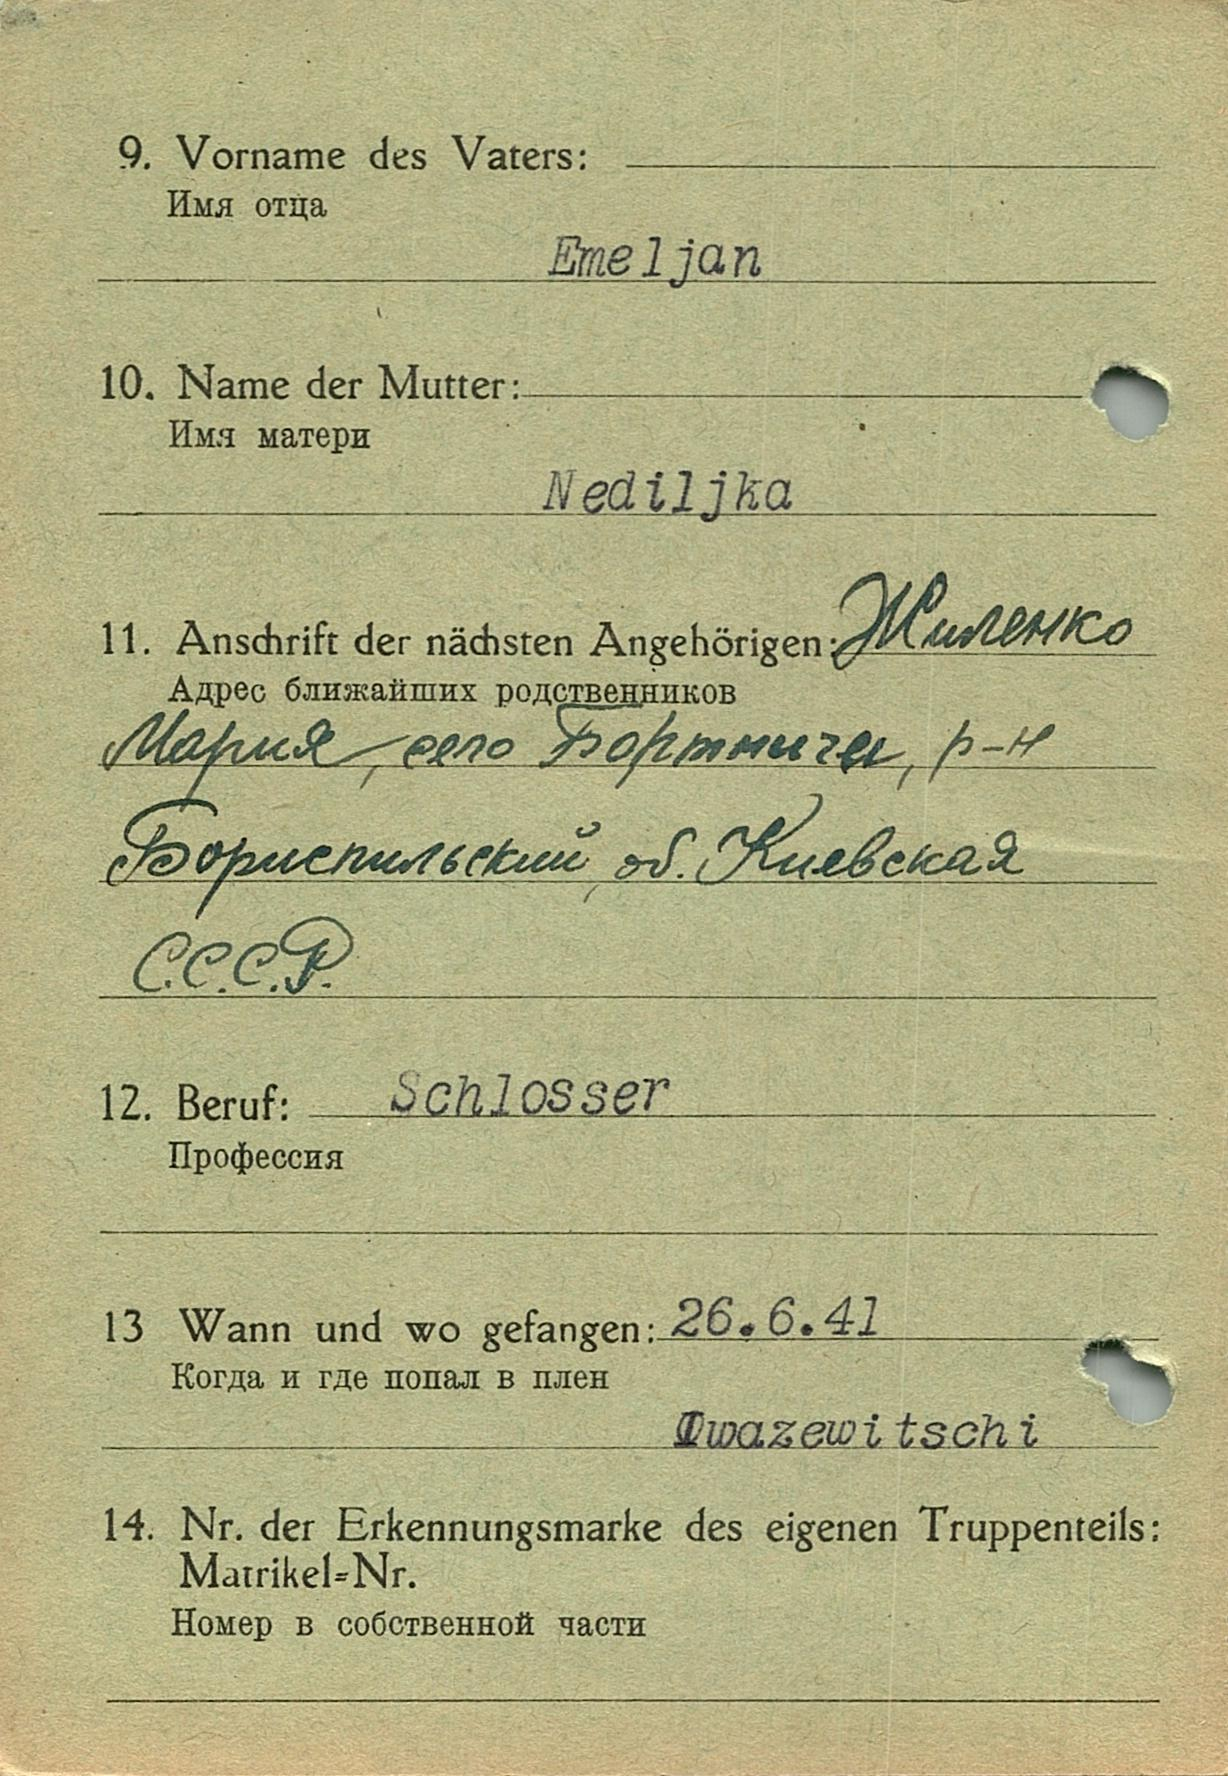 9. Vorname des Vaters:
Имя отца
Emeljan
10. Name der Mutter:
Имя матери
Nediljka
11. Anschrift der nächsten Angehörigen: Жиленко
Адрес ближайших родственников
Мария, село Бортничи, р-н
Бориспильский, об. Киевская
С.С.С.Р.
12. Beruf: Schlosser
Профессия
13 Wann und wo gefangen: 26.6.41
Когда и где попал в плен
Iwazewitschi
14. Nr. der Erkennungsmarke des eigenen Truppenteils:
Matrikel-Nr.
Номер в собственной части